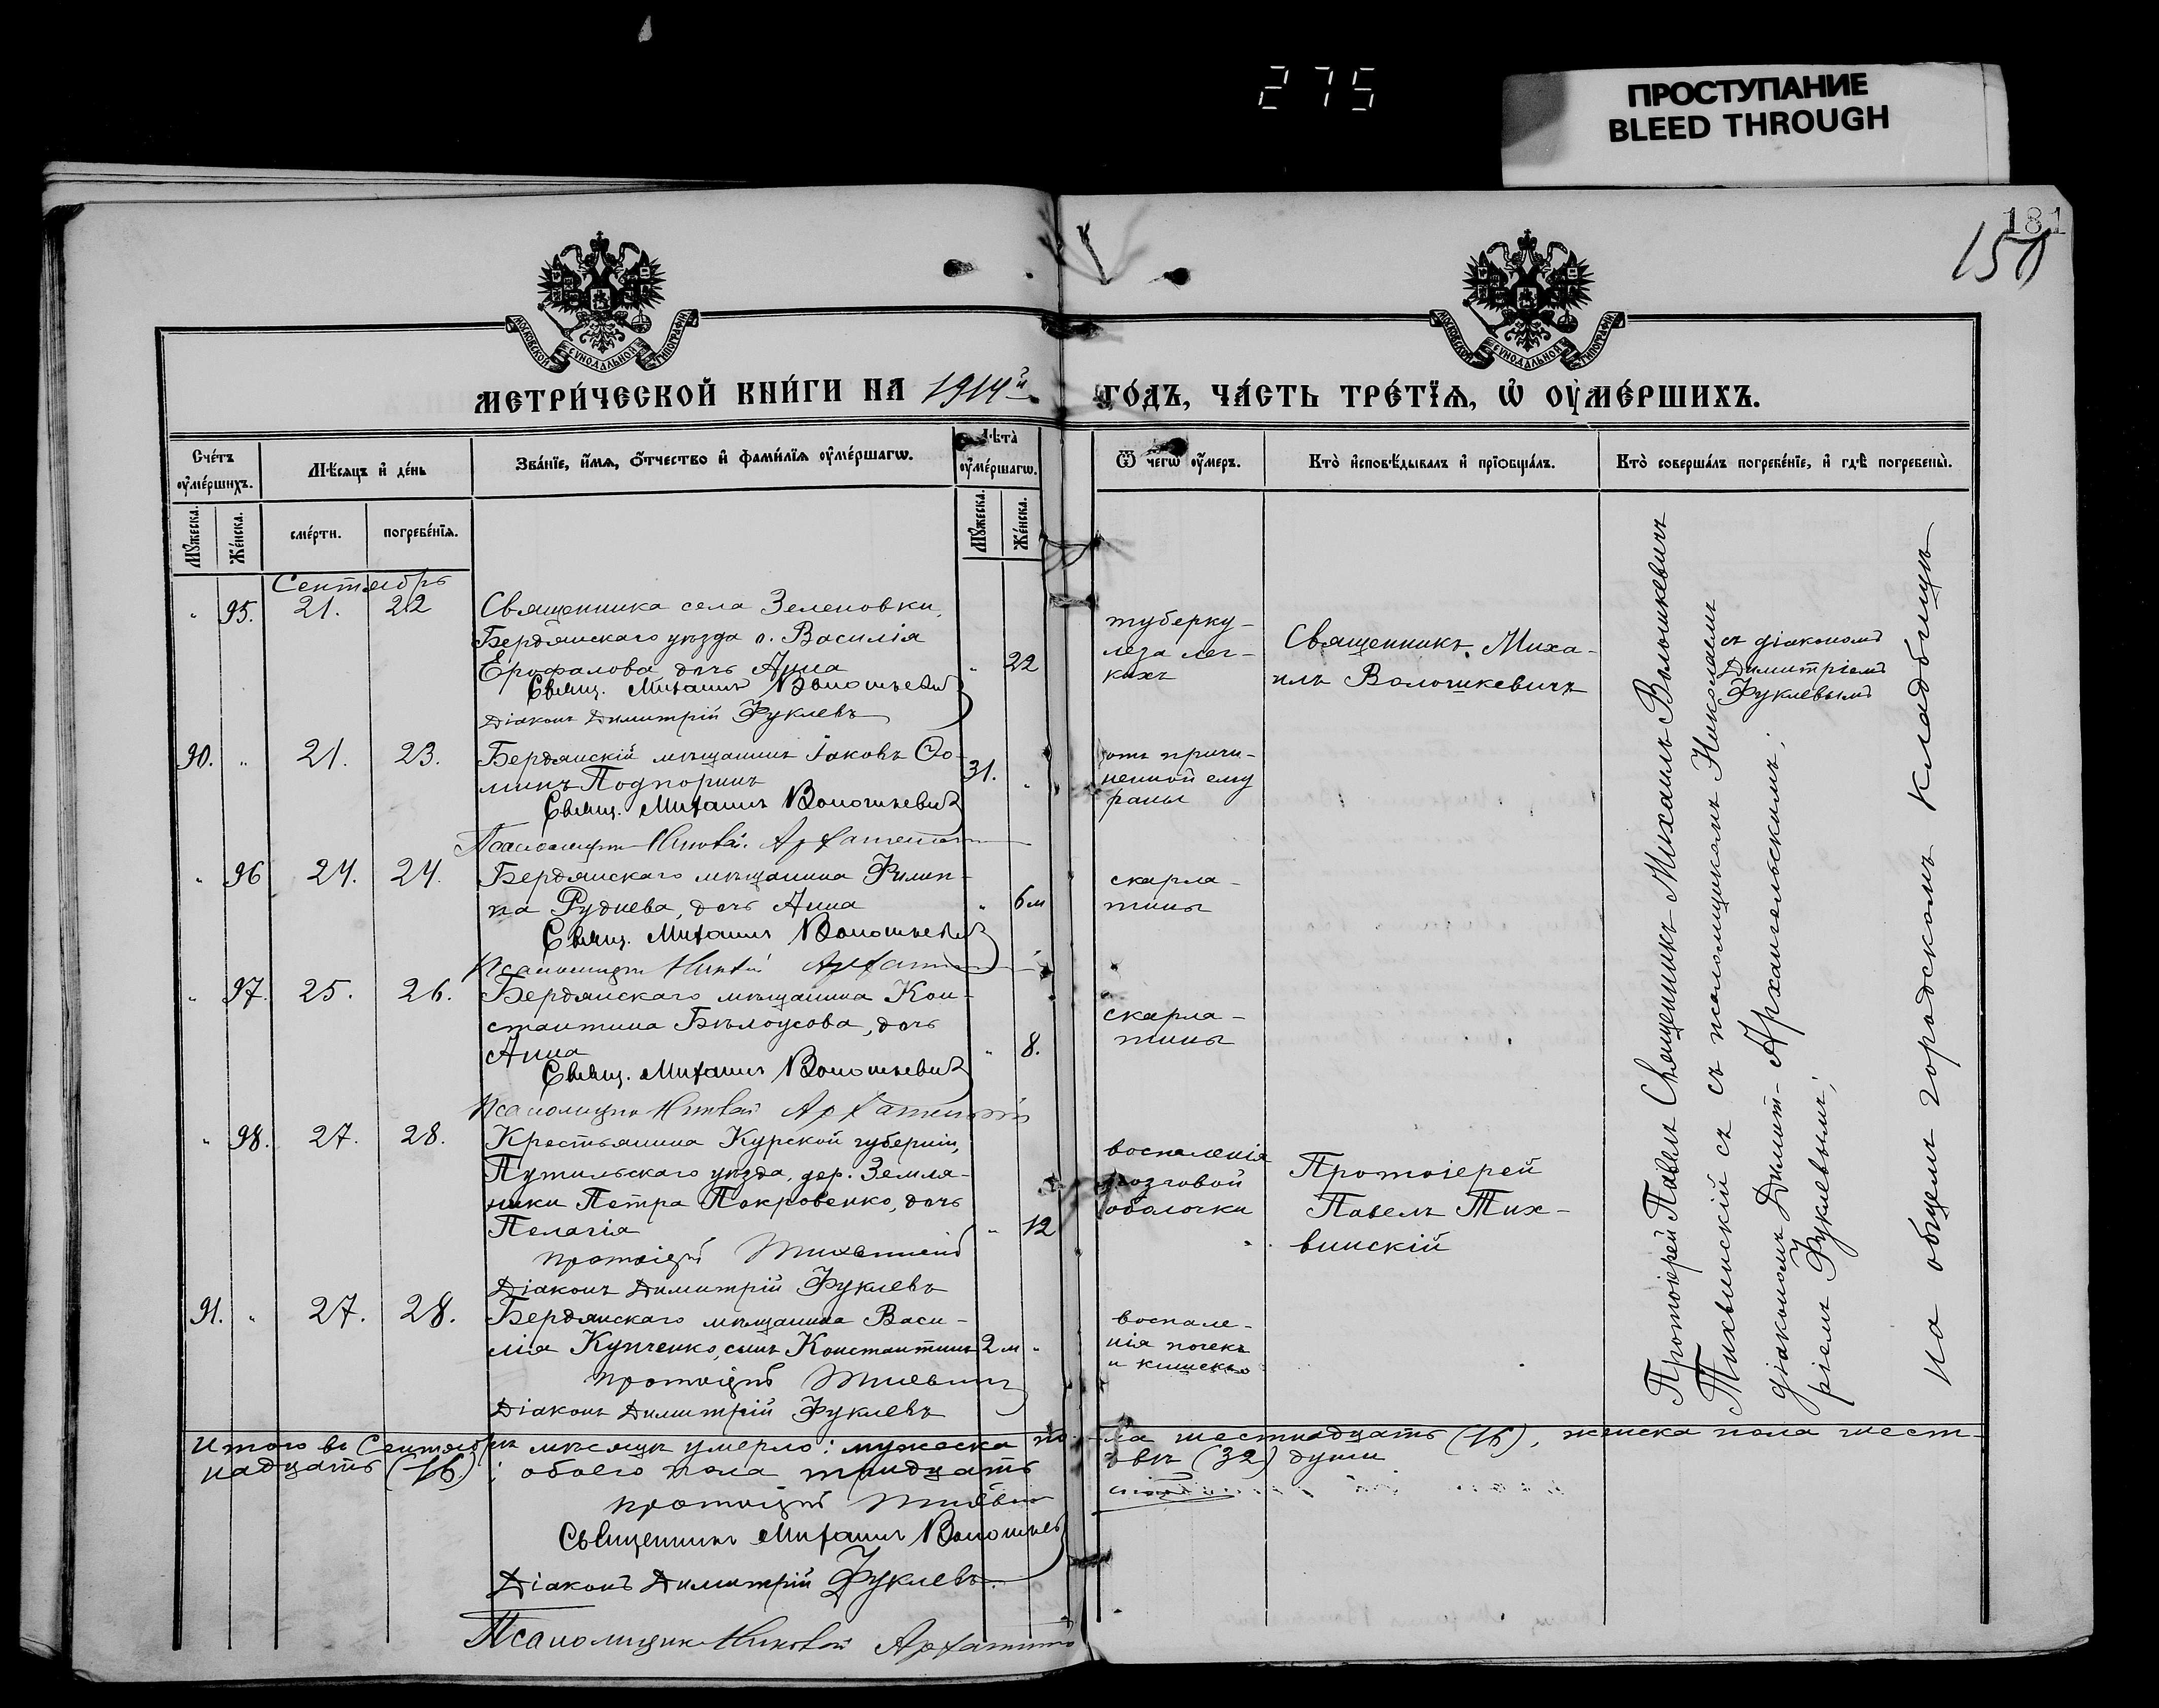 275
ПРОСТУПАНИЕ
BLEED THROUGH
181
150
МОСКОВСКОЙ СУНОДАЛЬНОЙ ТИПОГРАФІИ
МОСКОВСКОЙ СУНОДАЛЬНОЙ ТИПОГРАФІИ
МЕТРИ́ЧЕСКОЙ КНИ́ГИ НА 1914й
ГО́ДЪ, ЧА́СТЬ ТРЕ́ТЇѦ, Ѡ҆ ОУ҆МЕ́РШИХЪ.
Сче́тъ оу҆ме́ршихъ.
Мѣ́сяцъ и҆ де́нь
Зва́нїе, и҆́мя, ѻ҆́тчество и҆ фами́лїя оу҆ме́ршагѡ.
Лѣ́та оу҆ме́ршагѡ.
Ѿ чегѡ̀ оу҆́меръ.
Кто̀ и҆сповѣ́дывалъ и҆ прїѡбща́лъ.
Кто̀ соверша́лъ погребе́нїе, и҆ гдѣ̀ погребены̀.
Мꙋ́жеска.
Же́нска.
сме́рти.
погребе́нїя.
Мꙋ́жеска.
Же́нска.
Сентябрь
" 95. 21. 22 Священника села Зеленовки,
Бердянскаго уѣзда о. Василія
Ерофалова дочь Анна " 22
Свящ. Михаилъ Волошкевич
Діаконъ Димитрій Фуклевъ
туберку-
леза лег-
кихъ
Священникъ Миха-
илъ Волошкевичъ
90. " 21. 23. Бердянскій мѣщанинъ Іаковъ Ѳо-
минъ Подпоринъ 31. "
Свящ. Михаилъ Волошкевич
Псаломщикъ Николай Архангельскій
отъ причи-
ненной ему
раны
" 96 24. 24. Бердянскаго мѣщанина Филип-
па Руднева, дочь Анна " 6 м
Свящ. Михаилъ Волошкевич
Псаломщикъ Николай Архангельскій
скарла-
тины
" 97. 25. 26. Бердянскаго мѣщанина Кон-
стантина Бѣлоусова, дочь
Анна " 8.
Свящ. Михаилъ Волошкевич
Псаломщикъ Николай Архангельскій
скарла-
тины
" 98. 27. 28. Крестьянина Курской губерніи,
Путивльскаго уѣзда, дер. Земля-
ники Петра Покровенко, дочь
Пелагія " 12
Протоіерей Тихвинскій
Діаконъ Димитрій Фуклевъ
воспаленія
мозговой
оболочки
Протоіерей
Павелъ Тих-
винскій
91. " 27. 28. Бердянскаго мѣщанина Васи-
лія Купченко, сынъ Константинъ 2 м "
Протоіерей Тихвинскій
Діаконъ Димитрій Фуклевъ
воспале-
нія почекъ
и кишекъ
Протоіерей Павелъ Священникъ Михаилъ Волошкевичъ
Тихвинскій съ съ псаломщикомъ Николаемъ
діакономъ Димит- Архангельскимъ;
ріемъ Фуклевымъ;
съ діакономъ
Димитріемъ
Фуклевымъ
на общемъ городскомъ кладбищѣ
Итого въ Сентябрѣ мѣсяцѣ умерло: мужеска пола шестнадцать (16), женска пола шест-
надцать (16); обоего пола тридцать двѣ (32) души
Протоіерей Тихвинскій
Священникъ Михаилъ Волошкевич
Діаконъ Димитрій Фуклевъ.
Псаломщикъ Николай Архангельскій